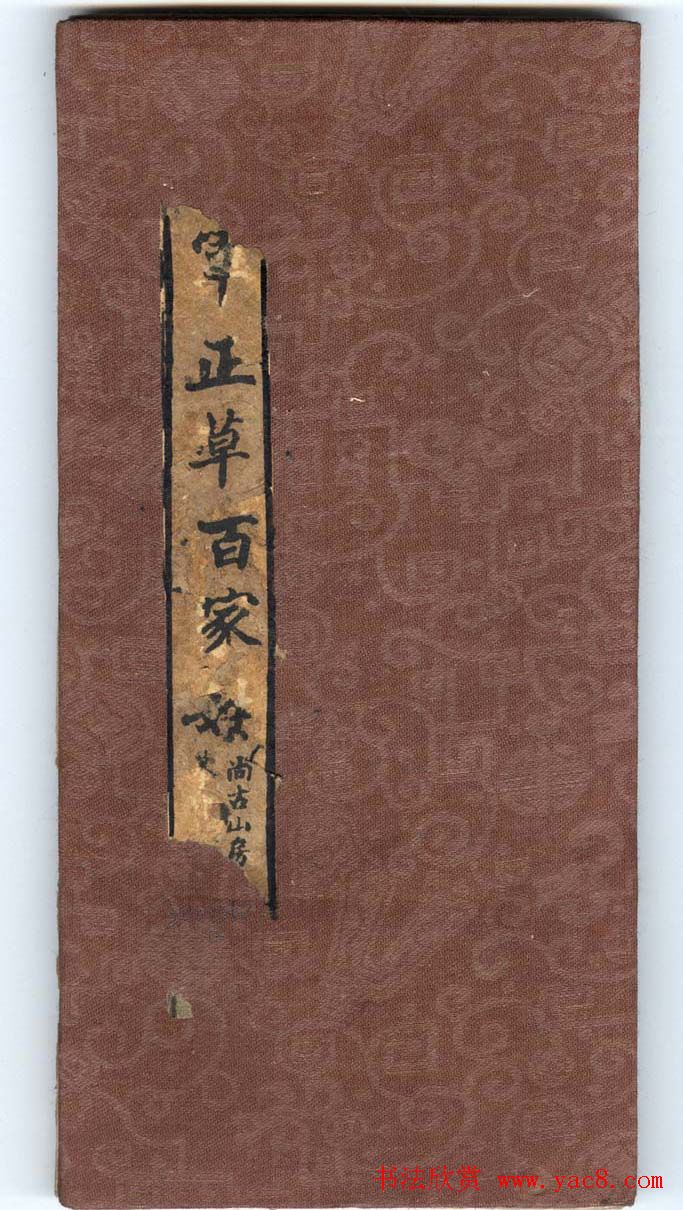 正草百家姓
尚古山房
书法欣赏 www.yac8.com